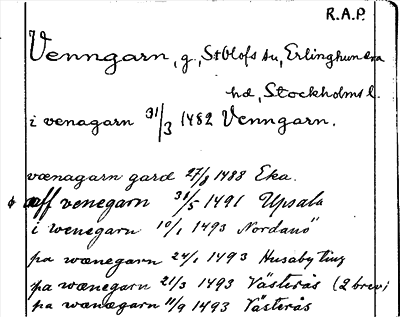 R.A.P.
Venngarn, g, St Olofs sn, Erlinghundra
hd, Stockholms l.
i venagarn 31/3 1482 Venngarn.
vænagarn gard 27/8 1488 Eka.
aff venegarn 31/5 1491 Upsala
i wenegarn 10/1 1493 Nordanö
pa wænegarn 24/1 1493 Husaby ting
pa wænegarn 21/3 1493 Västerås (2 brev)
pa wænægarn 11/9 1493 Västerås